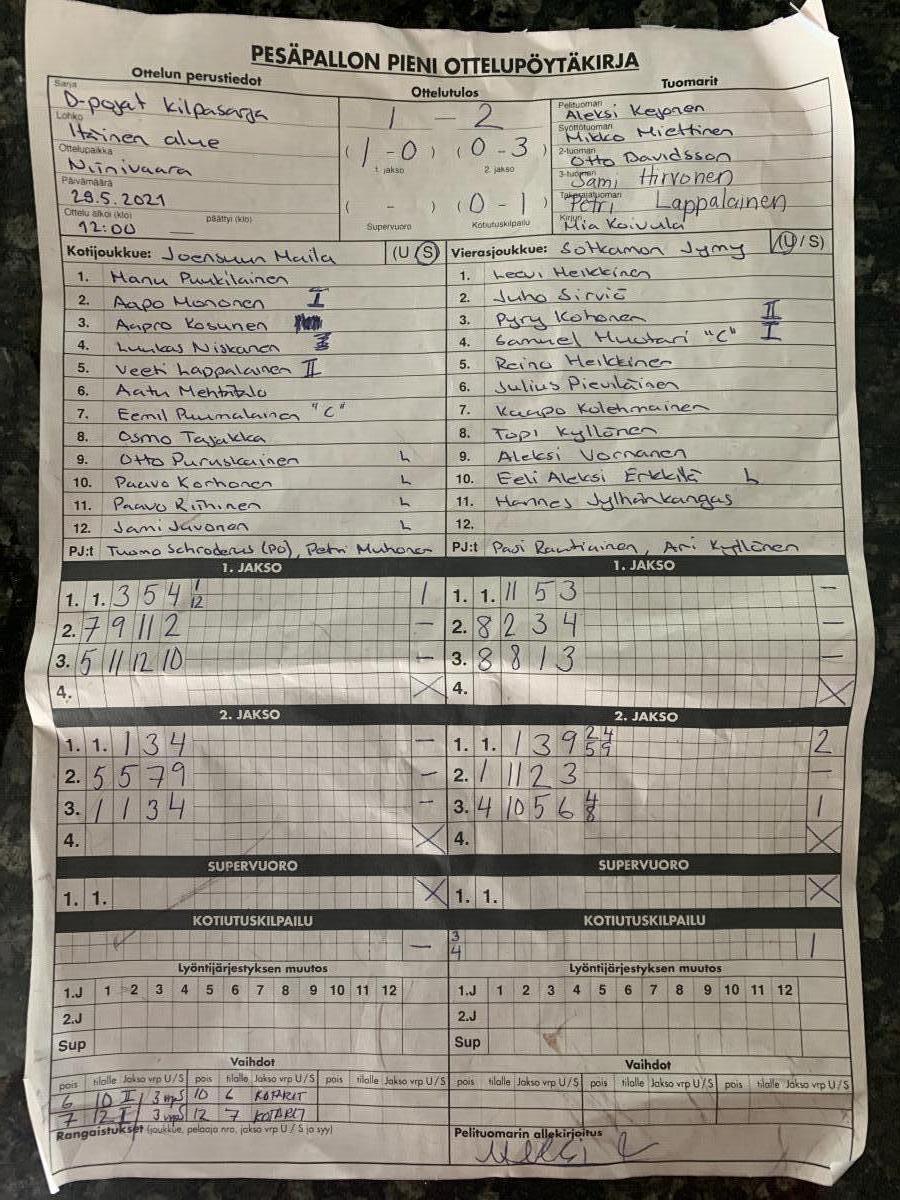 PESÄPALLON PIENI OTTELUPÖYTÄKIRJA
Ottelun perustiedot
Ottelutulos
Tuomarit
Sarja
D-pojat kilpasarja
Lohko
Itäinen alue
Ottelupaikka
Niinivaara
Päivämäärä
29.5.2021
Ottelu alkoi (klo) päättyi (klo)
12:00
1 – 2
( 1 - 0 ) ( 0 - 3 )
1. jakso 2. jakso
( - ) ( 0 - 1 )
Supervuoro Kotiutuskilpailu
Pelituomari
Aleksi Keronen
Syöttötuomari
Mikko Miettinen
2-tuomari
Otto Davidsson
3-tuomari
Sami Hirvonen
Takarajatuomari
Petri Lappalainen
Kirjuri
Mia Koivula
Kotijoukkue: Joensuun Maila (U / S)
1. Manu Puukilainen
2. Aapo Mononen I
3. Aapro Kosunen
4. Luukas Niskanen
5. Veeti Lappalainen II
6. Aatu
7. Eemil Puumalainen "C"
8. Osmo Tajakka
9. Otto Puruskainen L
10. Paavo Korhonen L
11. Paavo Riihinen L
12. Jami Javonen L
PJ:t Tuomo Schroderus (PO), Petri Muhonen
Vierasjoukkue: Sotkamon Jymy (U / S)
1. Leevi Heikkinen
2. Juho Sirviö
3. Pyry Kohonen II
4. Samuel Huotari "C" I
5. Reino Heikkinen
6. Julius Pieviläinen
7. Kaapo Kolehmainen
8. Topi Kyllönen
9. Aleksi Vornanen
10. Eeli Aleksi Erkkilä L
11. Hannes Jylhänkangas
12.
PJ:t Pasi Rautiainen, Ari Kyllönen
1. JAKSO
1. 1. 3 5 4 1 12 1
2. 7 9 11 2 –
3. 5 11 12 10 –
4. X
1. JAKSO
1. 1. 11 5 3 –
2. 8 2 3 4 –
3. 8 8 1 3 –
4. X
2. JAKSO
1. 1. 1 3 4 –
2. 5 5 7 9 –
3. 1 1 3 4 –
4. X
2. JAKSO
1. 1. 1 3 9 2 4 5 9 2
2. 1 11 2 3 –
3. 4 10 5 6 4 8 1
4. X
SUPERVUORO
1. 1. X
SUPERVUORO
1. 1. X
KOTIUTUSKILPAILU
–
KOTIUTUSKILPAILU
3
4 1
Lyöntijärjestyksen muutos
1.J 1 2 3 4 5 6 7 8 9 10 11 12
2.J
Sup
Lyöntijärjestyksen muutos
1.J 1 2 3 4 5 6 7 8 9 10 11 12
2.J
Sup
Vaihdot
pois tilalle Jakso vrp U / S pois tilalle Jakso vrp U / S pois tilalle Jakso vrp U / S
6 10 II 3 vrpS 10 6 KOTARIT
7 12 I 3 vrpS 12 7 KOTARIT
Vaihdot
pois tilalle Jakso vrp U / S pois tilalle Jakso vrp U / S pois tilalle Jakso vrp U / S
Rangaistukset (joukkue, pelaaja nro, jakso vrp U / S ja syy)
Pelituomarin allekirjoitus